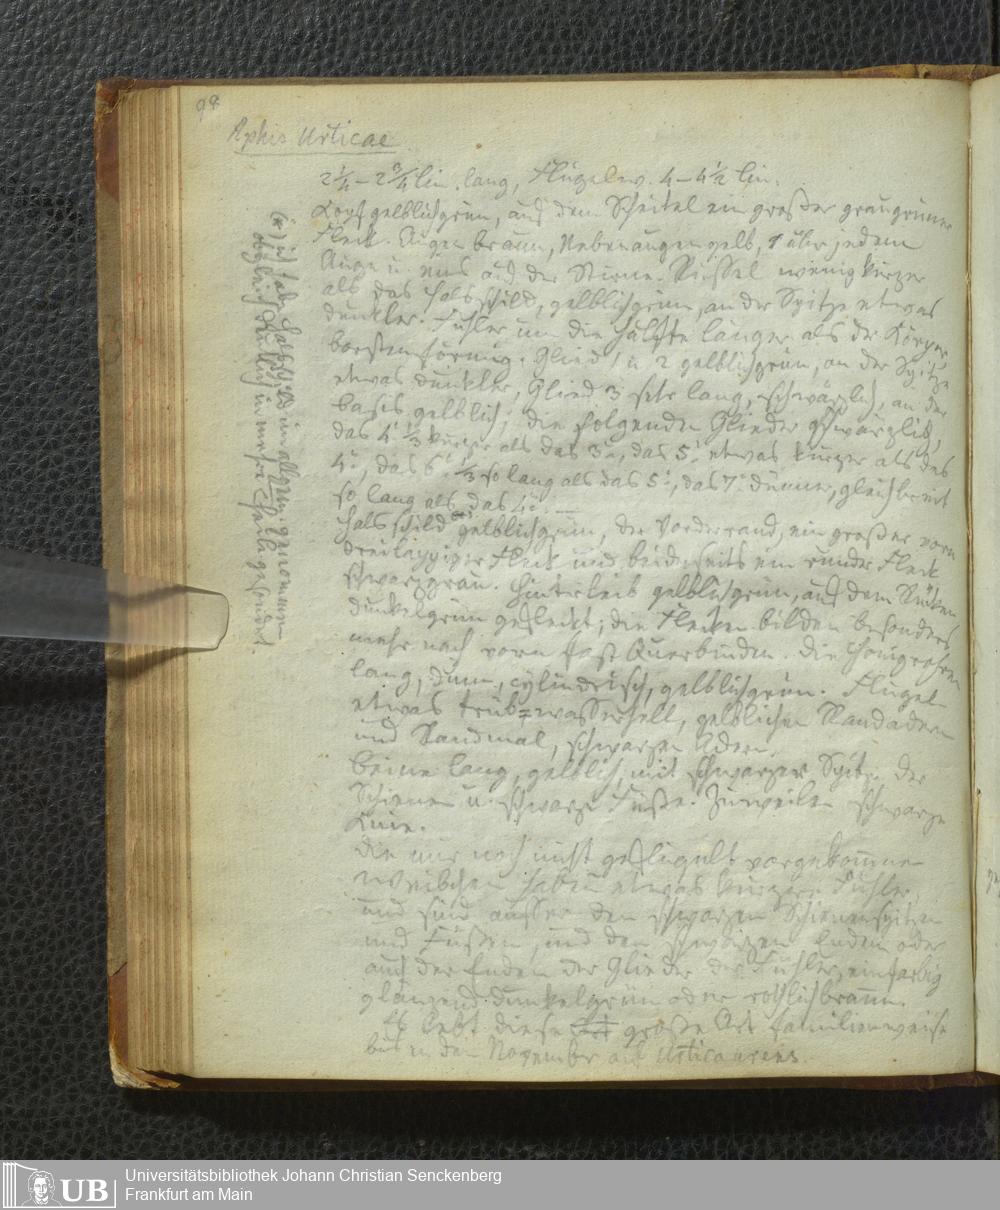 98.
Aphis Urticae
2 1/4 – 2 3/4 lin. lang, Flügelw. 4 – 4 1/2 lin.
Kopf gelblichgrün, auf dem Scheitel ein großer graugrüner
Fleck. Augen braun, Nebenaugen gelb, 1 über jedem
Auge u. eins auf der Stirne. Rüssel wenig kürzer
als das Halsschild, gelblichgrün, an der Spitze etwas
dunkler. Fühler um die Hälfte länger als der Körper,
borstenförmig. Glied 1 u. 2 gelblichgrün, an der Spitze
etwas dunkler, Glied 3 sehr lang, schwärzlich, an der
Basis gelblich; die folgenden Glieder schwärzlich,
das 4t 1/3 kürzer als das 3te, das 5t etwas kürzer als das
4te, das 6t 1/3 so lang als das 5te, das 7te dünner, gleichbreit
so lang als das 4te. —
Halsschild gelblichgrün, der Vorderrand, ein großer vorn
dreilappiger Fleck und beiderseits ein runder Fleck
schwarzgrau. Hinterleib gelblichgrün, auf dem Rücken
dunkelgrün gefleckt; die Flecken bilden besonders
mehr nach vorn fast Querbinden. Die Honigröhren
lang, dünn, cylindrisch, gelblichgrün. Flügel
etwas trüb=wasserhell, gelblichen Randadern
und Randmal, schwarzen Adern.
Beine lang, gelblich, mit schwarzer Spitze der
Schienen u. schwarze Füße. Zuweilen schwarze
Knie.
Die mir noch nicht geflügelt vorgekommenen
Weibchen haben etwas kürzere Fühler
und sind ausser den schwarzen Schienenspitzen
und Füßen, und den schwarzen Enden oder
auch der Enden der Glieder der Fühler, einfarbig
glänzend dunkelgrün oder rothlichbraun.
Es lebt diese große Art familienweise
bis in den November auf Urtica urens.
(*) ich habe Halsschild im allgem. genommen
obgleich deutlich in mehre Theile gesondert.
Universitätsbibliothek Johann Christian Senckenberg
Frankfurt am Main
UB